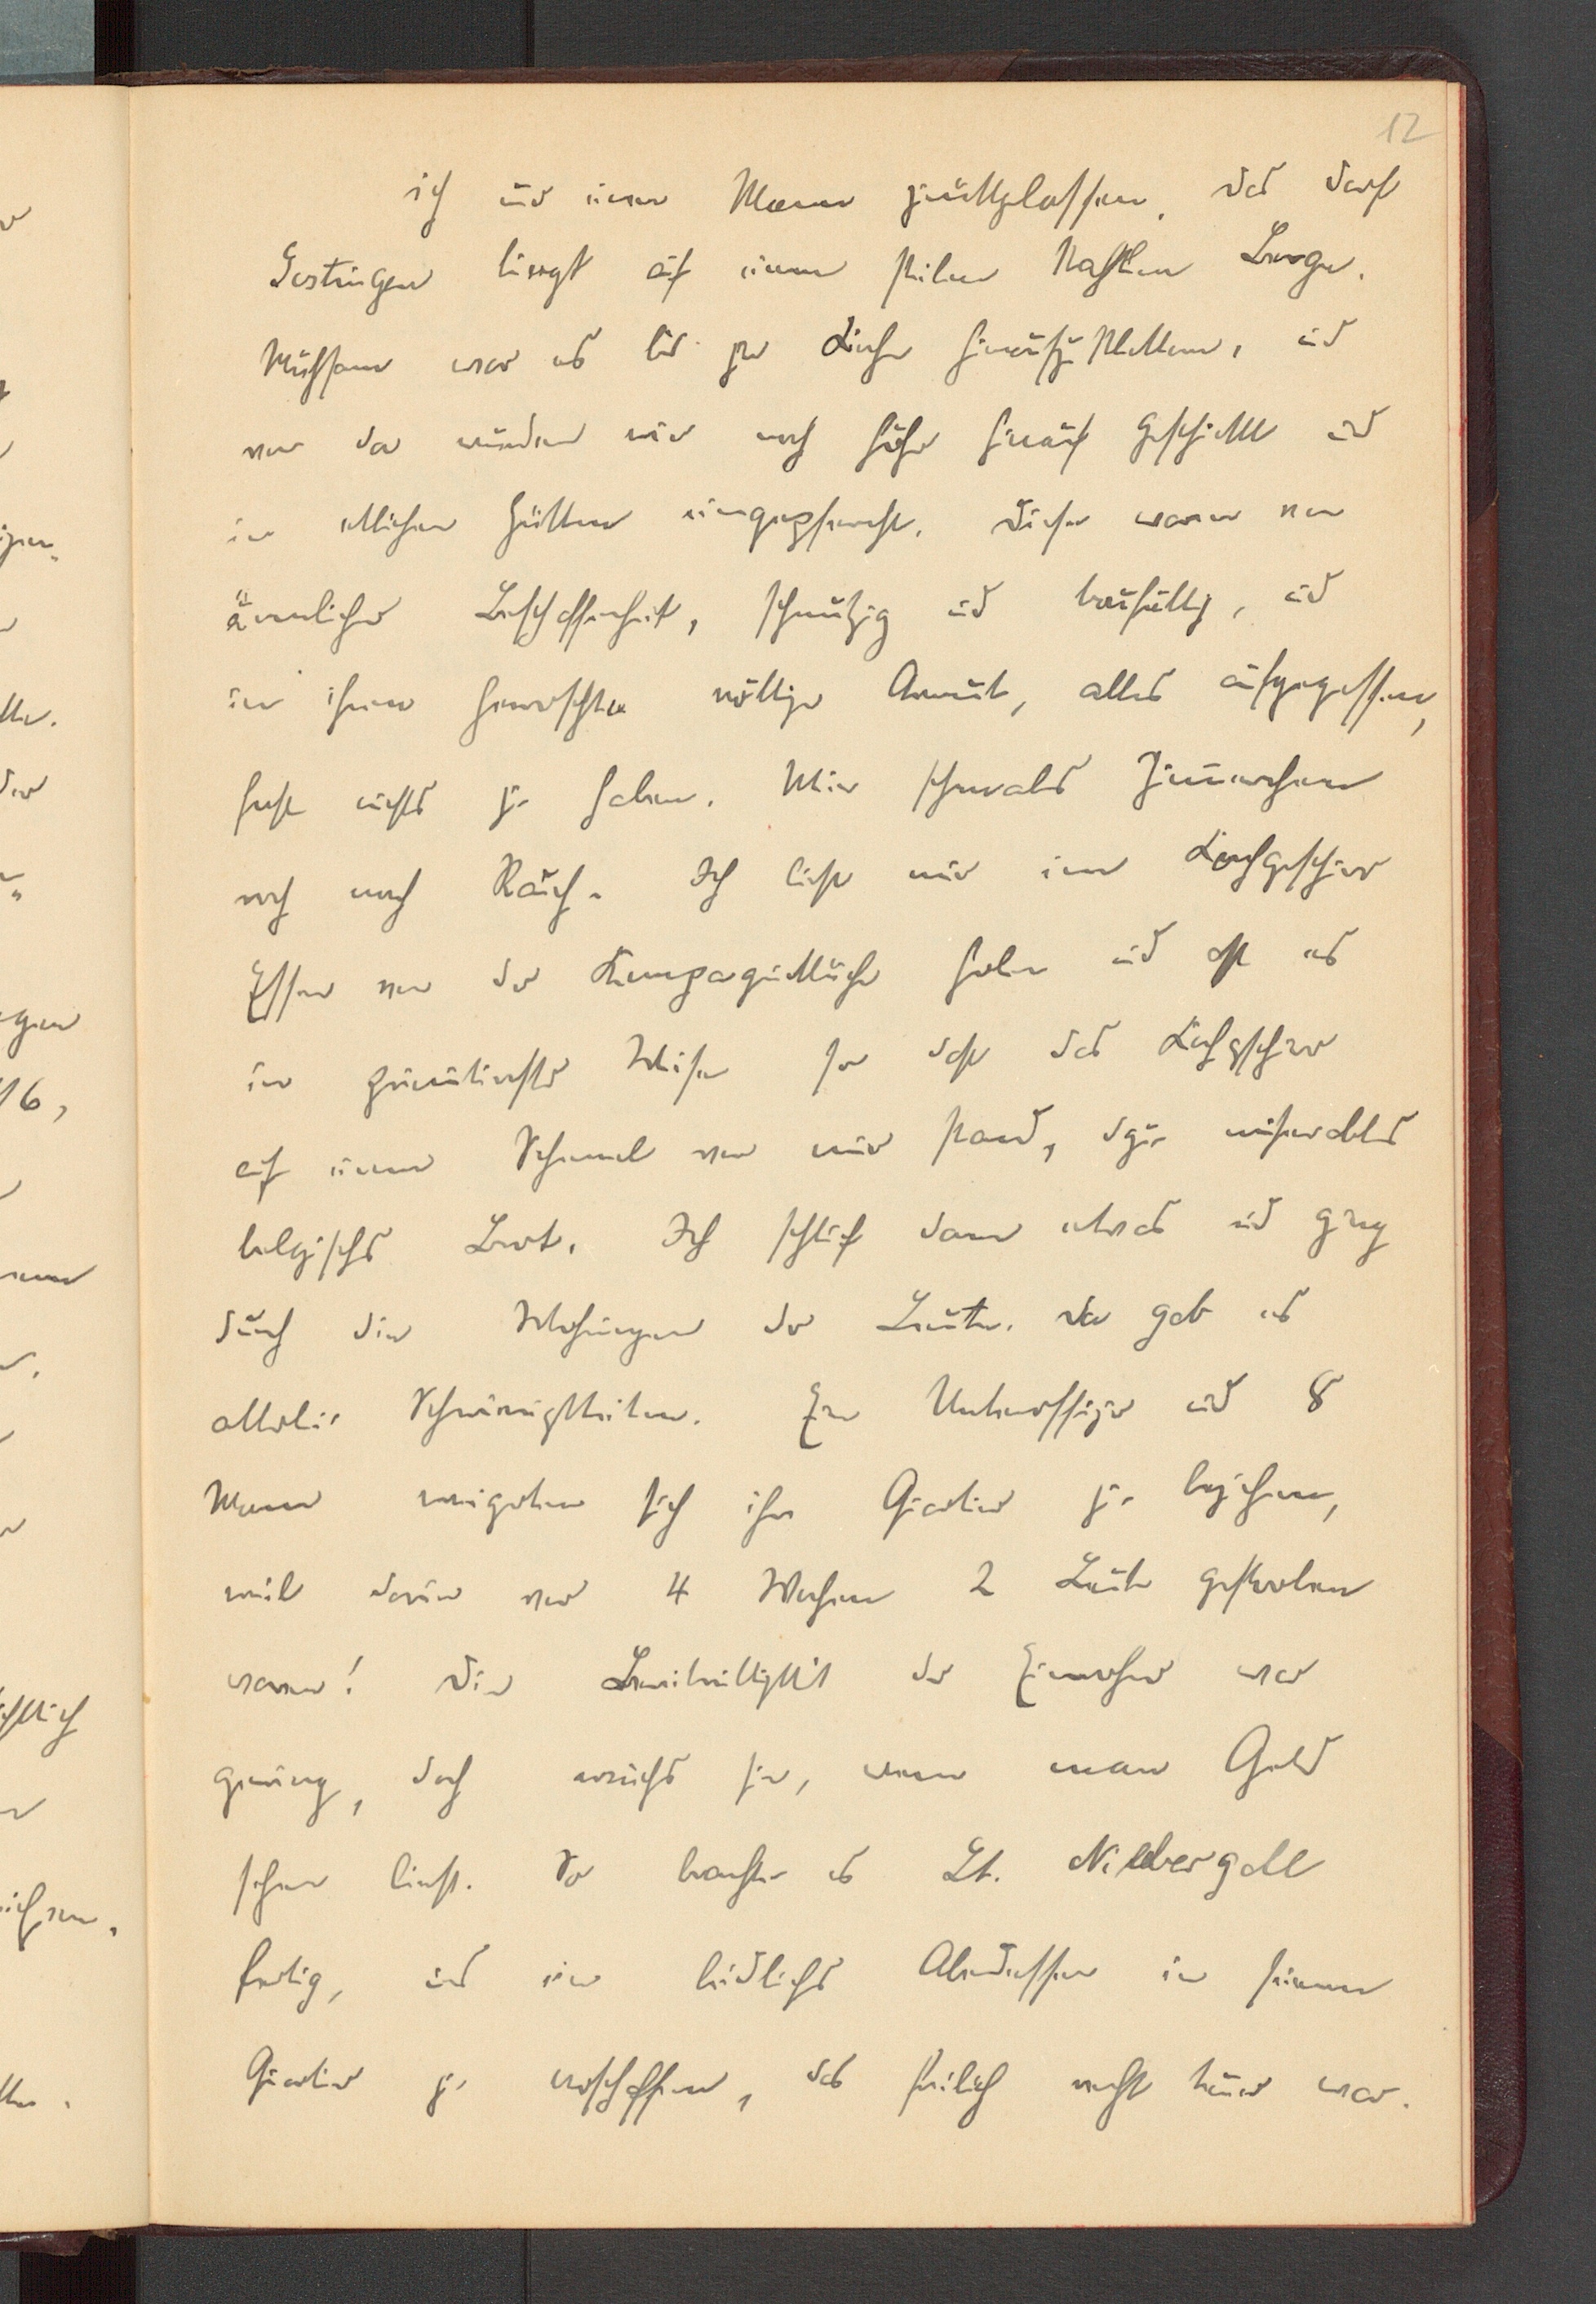 12
ich und einen Mann zurückgelassen. Das Dorf
Gertingen liegt auf einem steilen kahlen Berge.
Mühsam war es bis zur Kirche hinaufzuklettern, und
von da wurden wir noch höher hinauf geschickt und
in etlichen Hütten eingepfercht. Diese waren von
ärmlicher Beschaffenheit, schmutzig und baufällig, und
in ihnen herrschte völlige Armut, alles aufgegessen,
fast nichts zu haben. Mein schmales Zimmerchen
roch nach Rauch. Ich liess mir im Kochgeschirr
Essen von der Kompagnieküche holen und ass es
in primitivster Weise so dass das Kochgeschirr
auf einem Schemel vor mir stand, dazu miserables
belgisches Brot. Ich schlief dann etwas und ging
durch die Wohnungen der Leute. Da gab es
allerlei Schwierigkeiten. Ein Unteroffizier und 8
Mann weigerten sich ihr Quartier zu beziehen,
weil darin vor 4 Wochen 2 Leute gestorben
waren! Die Bereitwilligkeit der Einwohner war
gering, doch wuchs sie, wenn man Geld
sehen liess. So brachte es Lt. Niebergall
fertig, uns ein leidliches Abendessen in seinem
Quartier zu verschaffen, das freilich recht teuer war.